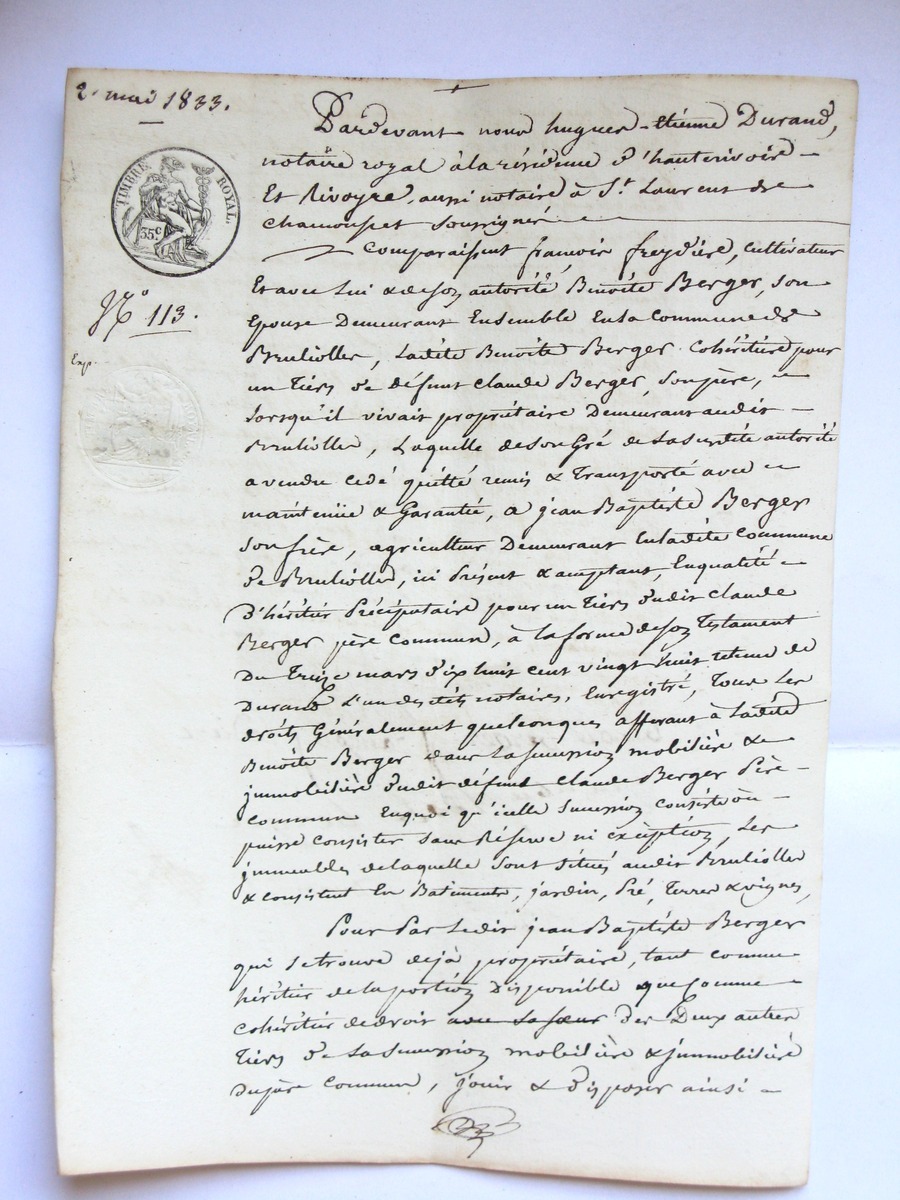 2 mai 1833.
TIMBRE ROYAL
35 c
N.° 113.
Exp.
Pardevant nous hugues-Etienne Durand,
notaire royal à la résidence d'hauterivoire
Et Rivoyre, aussi notaire à St. Laurent de
chamousset soussignés
Comparaissent françois freydière, cultivateur
Et avec lui & de son autorité Benoite Berger, son
Epouse Demeurant Ensemble En la Commune de
Brulioller, Ladite Benoite Berger Cohéritière pour
un Tiers de défunt Claude Berger, son père,
lorsqu'il vivait propriétaire Demeurant audit
Brulioller, Laquelle de son Gré de la susdite autorité
a vendu cédé quitté remis & Transporté avec
maintenue & Garantie, a jean Baptiste Berger
son frère, agriculteur Demeurant En ladite Commune
de Brulioller, ici Présent & acceptant, En qualité
D'héritier Précipitaire pour un Tiers dudit Claude
Berger père Commun, à la forme de son Testament
Du Treize mars dix huit cent vingt huit, retenu de
Durand L'un desdits notaires, Enregistré, Tous Les
droits Généralement quelconques afferant à Ladite
Benoite Berger dans La succession mobilière &
immobilière dudit défunt Claude Berger Père
commun En quoi qu'icelle succession consiste ou
puisse consister sans Réserve ni exception, Les
immeubles de laquelle sont situés audit Brulioller
& consistent En Batiments, jardin, Pré, Terres & vignes,
Pour Par Ledit jean Baptiste Berger
qui se trouve déjà propriétaire, tant comme
héritier de la portion Disponible que Comme
cohéritier de droit avec sa sœur des Deux autres
Tiers de La succession mobilière & immobilière
du père Commun, jouir & disposer ainsi